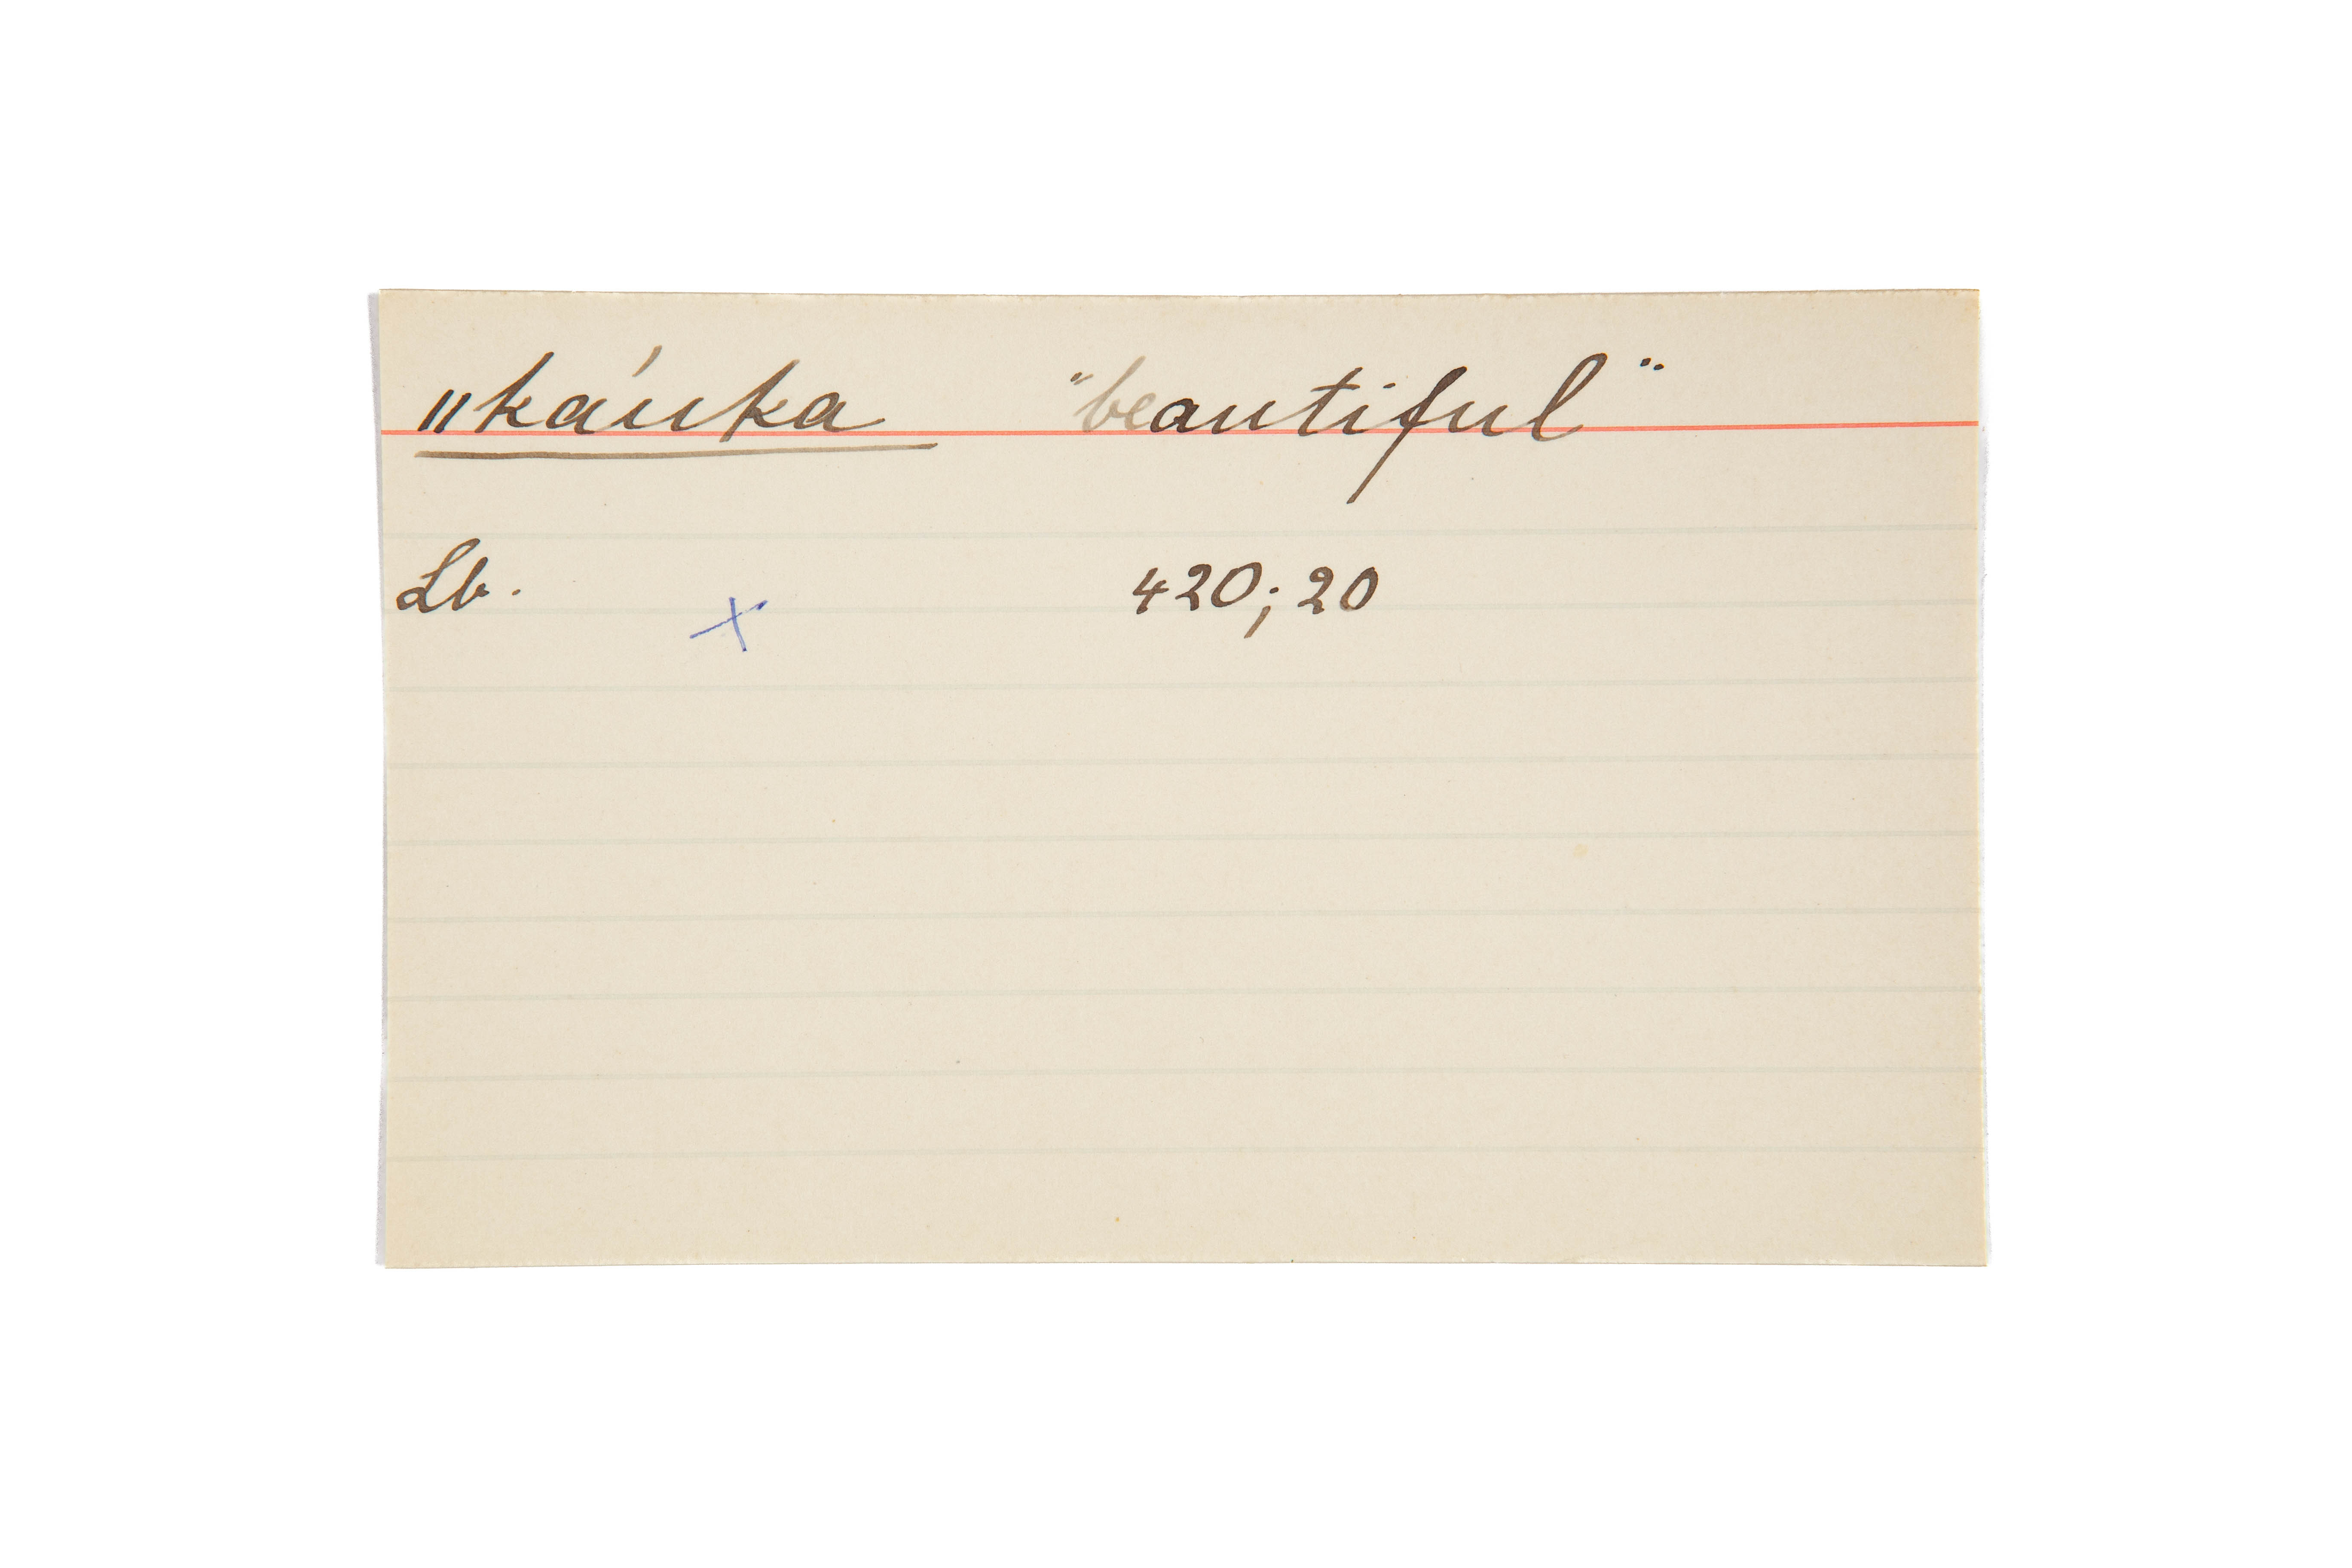 „káuka "beautiful"
Lb. x 420; 20